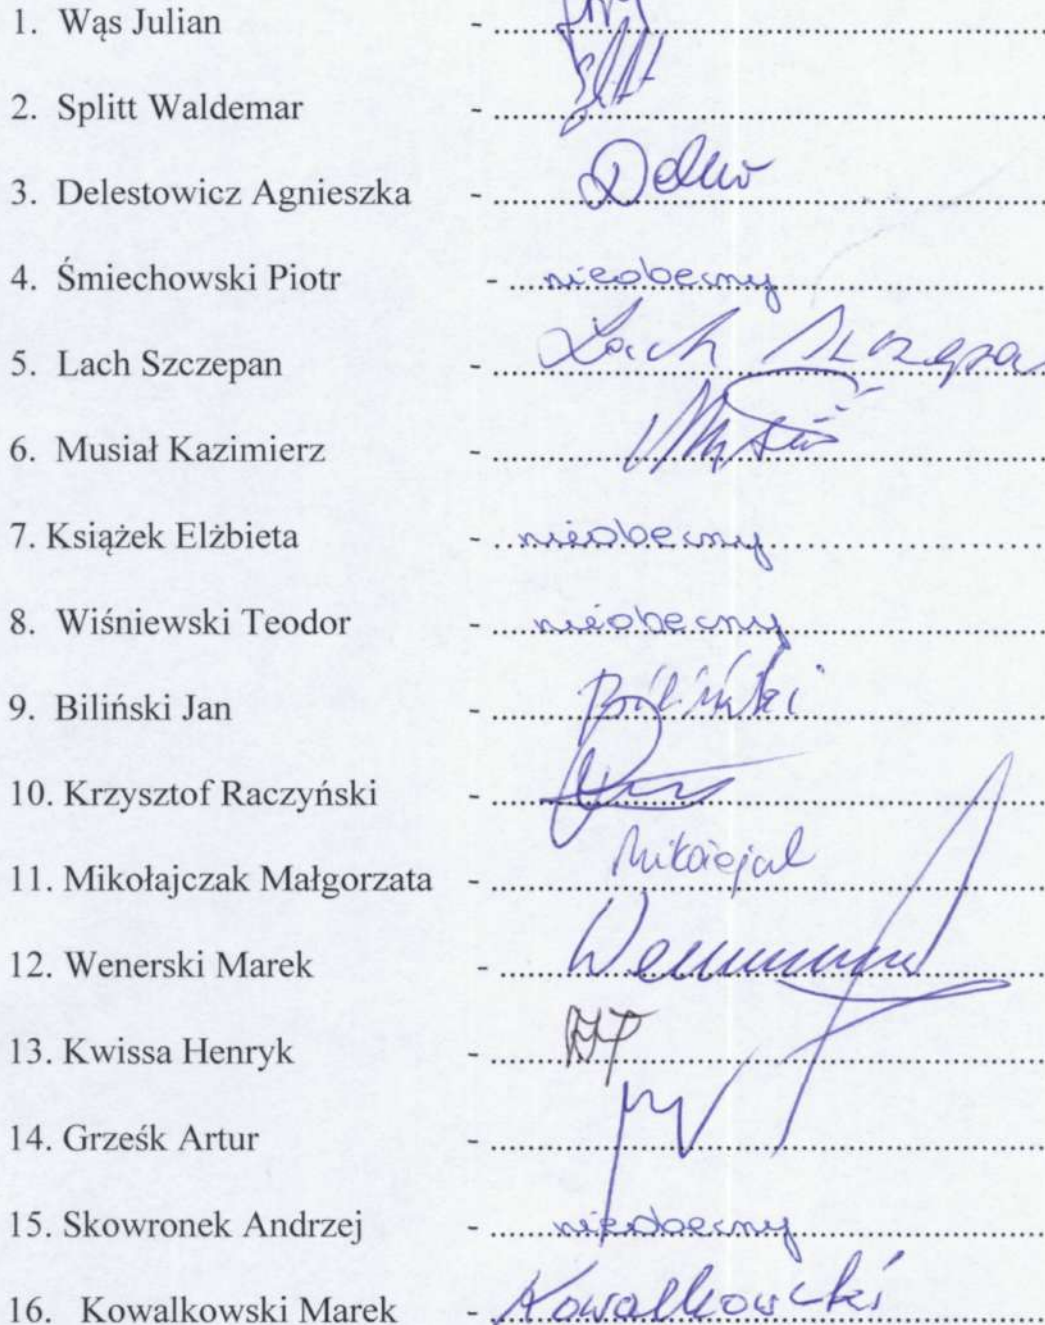 1. Wąs Julian - ....................
2. Splitt Waldemar - ....................
3. Delestowicz Agnieszka - ....................
4. Śmiechowski Piotr - ... nieobecny ....................
5. Lach Szczepan - .... Lach Szczepa
6. Musiał Kazimierz - ....................
7. Książek Elżbieta - .. nieobecny ....................
8. Wiśniewski Teodor - .... nieobecny ....................
9. Biliński Jan - .... Biliński ....................
10. Krzysztof Raczyński - ....................
11. Mikołajczak Małgorzata - ....................
12. Wenerski Marek - ....................
13. Kwissa Henryk - ....................
14. Grześk Artur - ....................
15. Skowronek Andrzej - .... nieobecny ....................
16. Kowalkowski Marek - Kowalkowski ....................